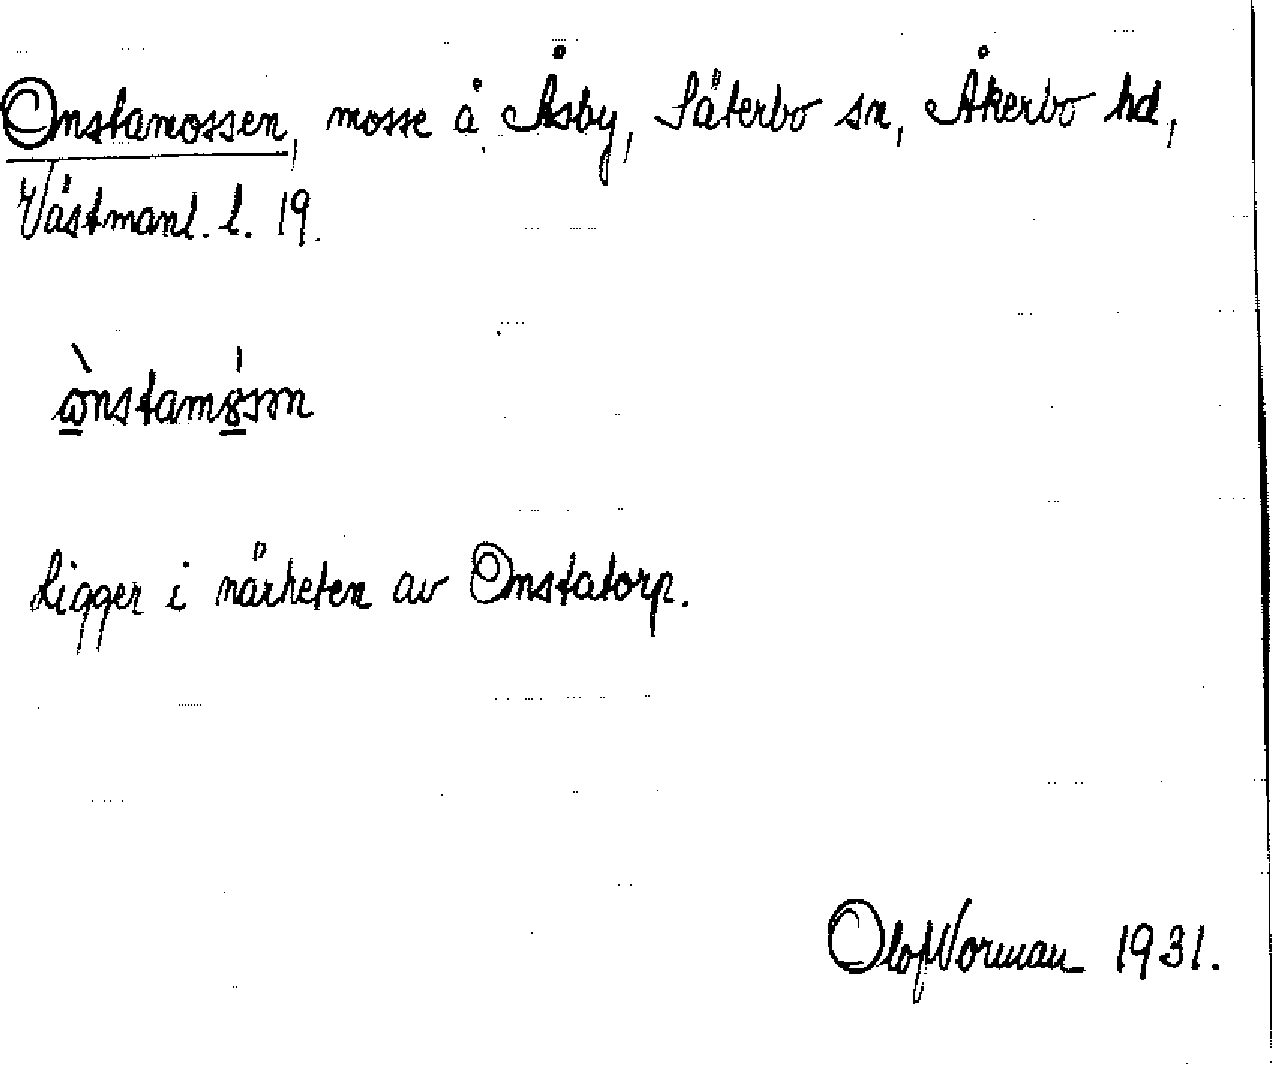 Onstamossen, mosse å Åsby, Säterbo sn, Åkerbo hd,
Västmanl. l. 19.
Ligger i närheten av Onstatorp.
Olof Norman 1931.